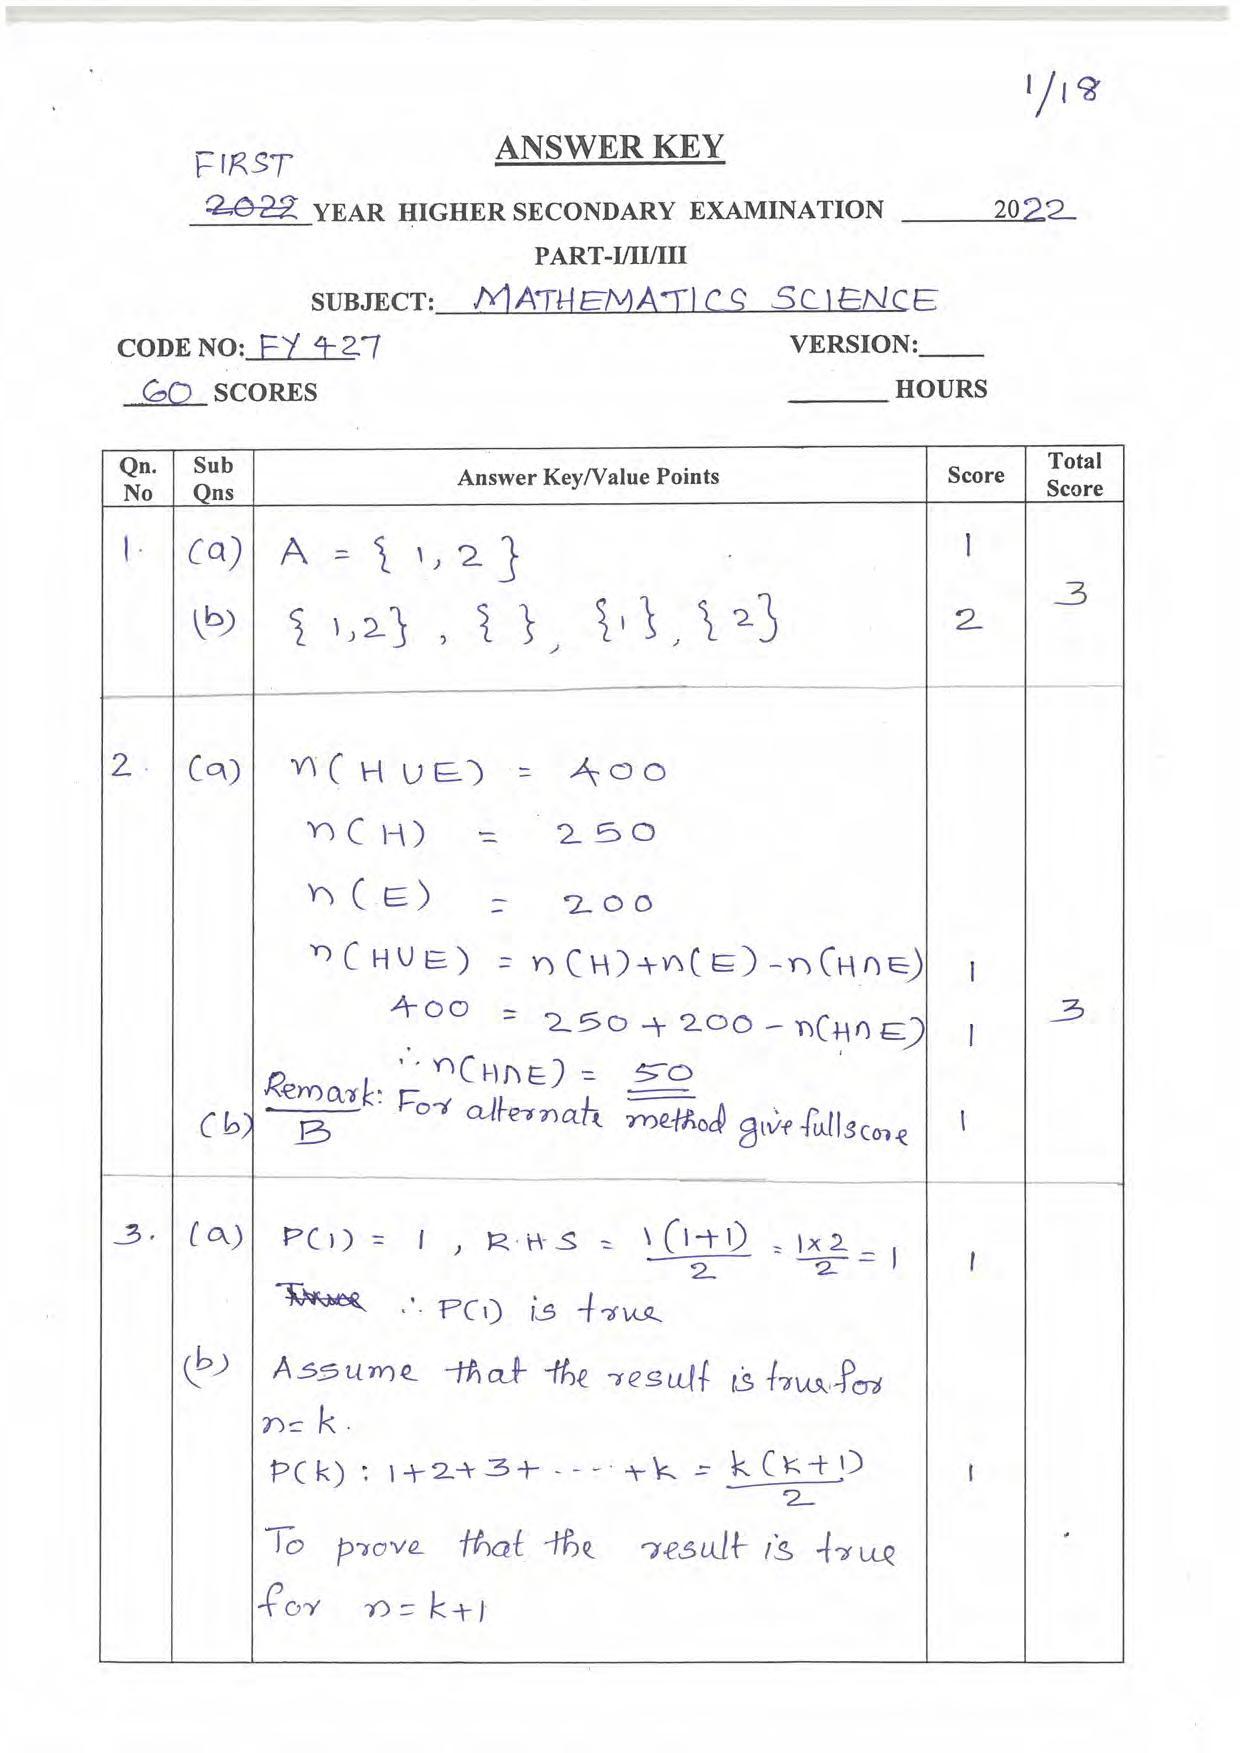 1/18
ANSWER KEY
FIRST
2022 YEAR HIGHER SECONDARY EXAMINATION 2022
PART-I/II/III
SUBJECT: MATHEMATICS SCIENCE
CODE NO: FY 427 VERSION:
60 SCORES HOURS
Qn. No Sub Qns Answer Key/Value Points Score Total Score
1. (a) A = { 1, 2 } 1
3
(b) { 1,2} , { } , {1} , { 2} 2
2. (a) n(H∪E) = 400
n(H) = 250
n(E) = 200
n(H∪E) = n(H)+n(E)-n(H∩E) 1
400 = 250+200-n(H∩E) 1
3
∴ n(H∩E) = 50
Remark: For alternate method give full score
(b) B 1
3. (a) P(1) = 1 , R.H.S = 1(1+1)/2 = 1×2/2 = 1 1
∴ P(1) is true
(b) Assume that the result is true for
n=k.
P(k) : 1+2+3+ ..... +k = k(k+1)/2 1
To prove that the result is true
for n=k+1